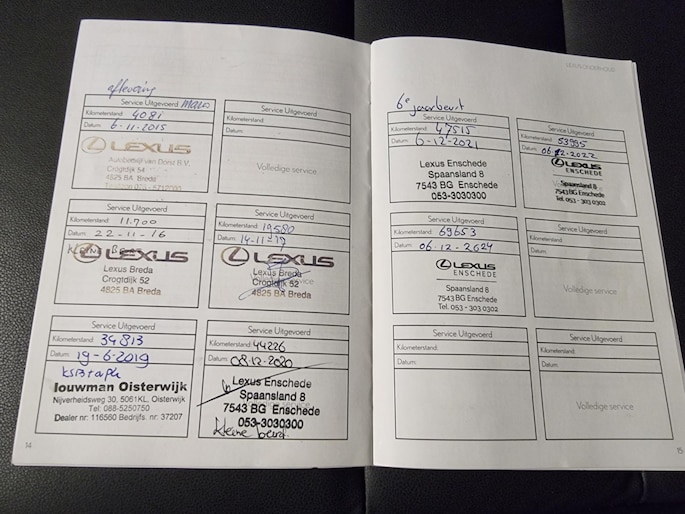 aflevering
Service Uitgevoerd
Kilometerstand: 4081
Datum: 6-11-2015
LEXUS
Autobedrijf van Dorst B.V.
Crogtdijk 54
4825 BA Breda
Service Uitgevoerd
Kilometerstand:
Datum:
Volledige service
Service Uitgevoerd
Kilometerstand: 11.700
Datum: 22-11-16
LEXUS
Lexus Breda
Crogtdijk 52
4825 BA Breda
Service Uitgevoerd
Kilometerstand: 19580
Datum: 14-11-17
LEXUS
Lexus Breda
Crogtdijk 52
4825 BA Breda
Service Uitgevoerd
Kilometerstand: 34813
Datum: 19-6-2019
louwman Oisterwijk
Nijverheidsweg 30, 5061KL, Oisterwijk
Tel: 088-5250750
Dealer nr: 116560 Bedrijfs nr: 37207
Service Uitgevoerd
Kilometerstand: 44226
Datum: 08-12-2020
Lexus Enschede
Spaansland 8
7543 BG Enschede
053-3030300
Kleine beurt
14
LEXUS ONDERHOUD
6e jaarbeurt
Service Uitgevoerd
Kilometerstand: 47515
Datum: 6-12-2021
Lexus Enschede
Spaansland 8
7543 BG Enschede
053-3030300
Service Uitgevoerd
Kilometerstand: 53995
Datum: 06-12-2022
LEXUS
ENSCHEDE
Spaansland 8
7543 BG Enschede
Tel. 053 - 303 0302
Service Uitgevoerd
Kilometerstand: 69653
Datum: 06-12-2024
LEXUS
ENSCHEDE
Spaansland 8
7543 BG Enschede
Tel. 053 - 303 0302
Service Uitgevoerd
Kilometerstand:
Datum:
Volledige service
Service Uitgevoerd
Kilometerstand:
Datum:
Service Uitgevoerd
Kilometerstand:
Datum:
Volledige service
15